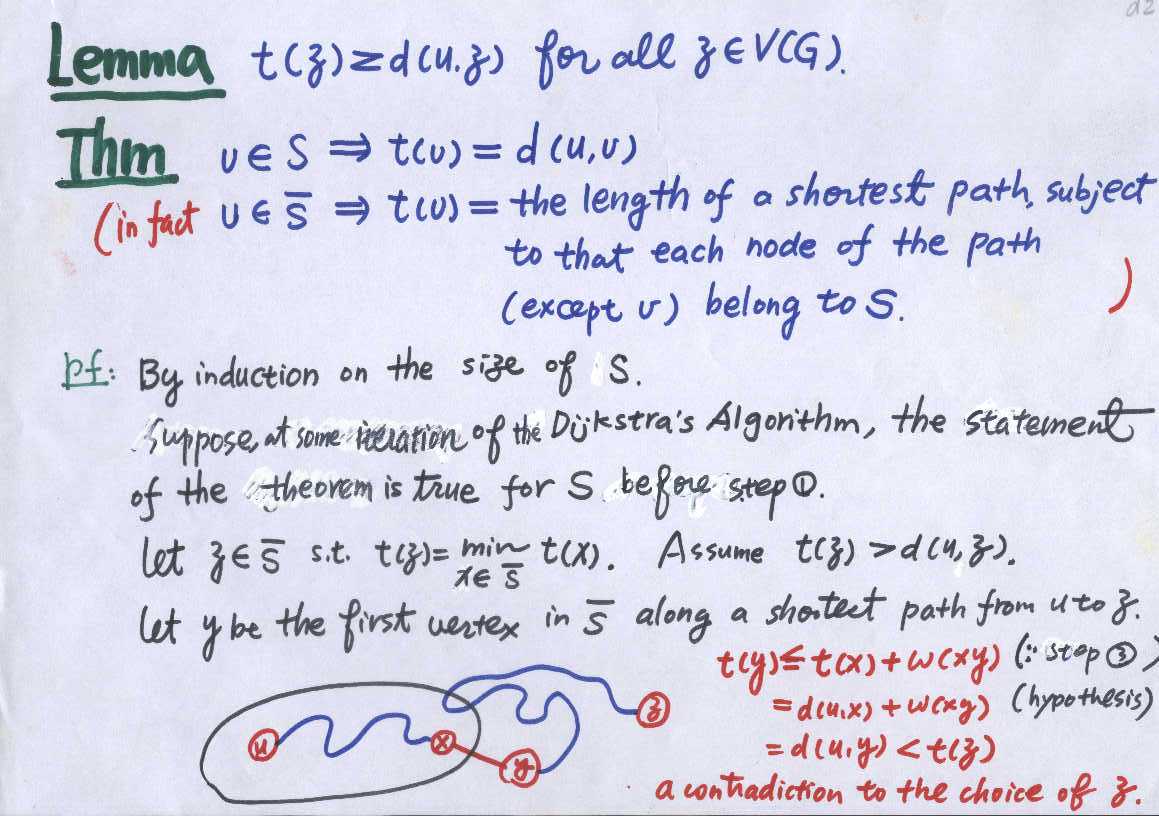 d2
Lemma t(z) ≥ d(u,z) for all z ∈ V(G).
Thm v ∈ S ⇒ t(v) = d(u,v)
(in fact v ∈ S̅ ⇒ t(v) = the length of a shortest path, subject
to that each node of the path
(except v) belong to S. )
pf: By induction on the size of S.
Suppose, at some iteration of the Dijkstra's Algorithm, the statement
of the theorem is true for S before step ①.
Let z ∈ S̅ s.t. t(z) = min t(x). Assume t(z) > d(u,z).
x ∈ S̅
Let y be the first vertex in S̅ along a shortest path from u to z.
t(y) ≤ t(x) + w(xy) (∵ step ③)
= d(u,x) + w(xy) (hypothesis)
= d(u,y) < t(z)
a contradiction to the choice of z.
u x y z